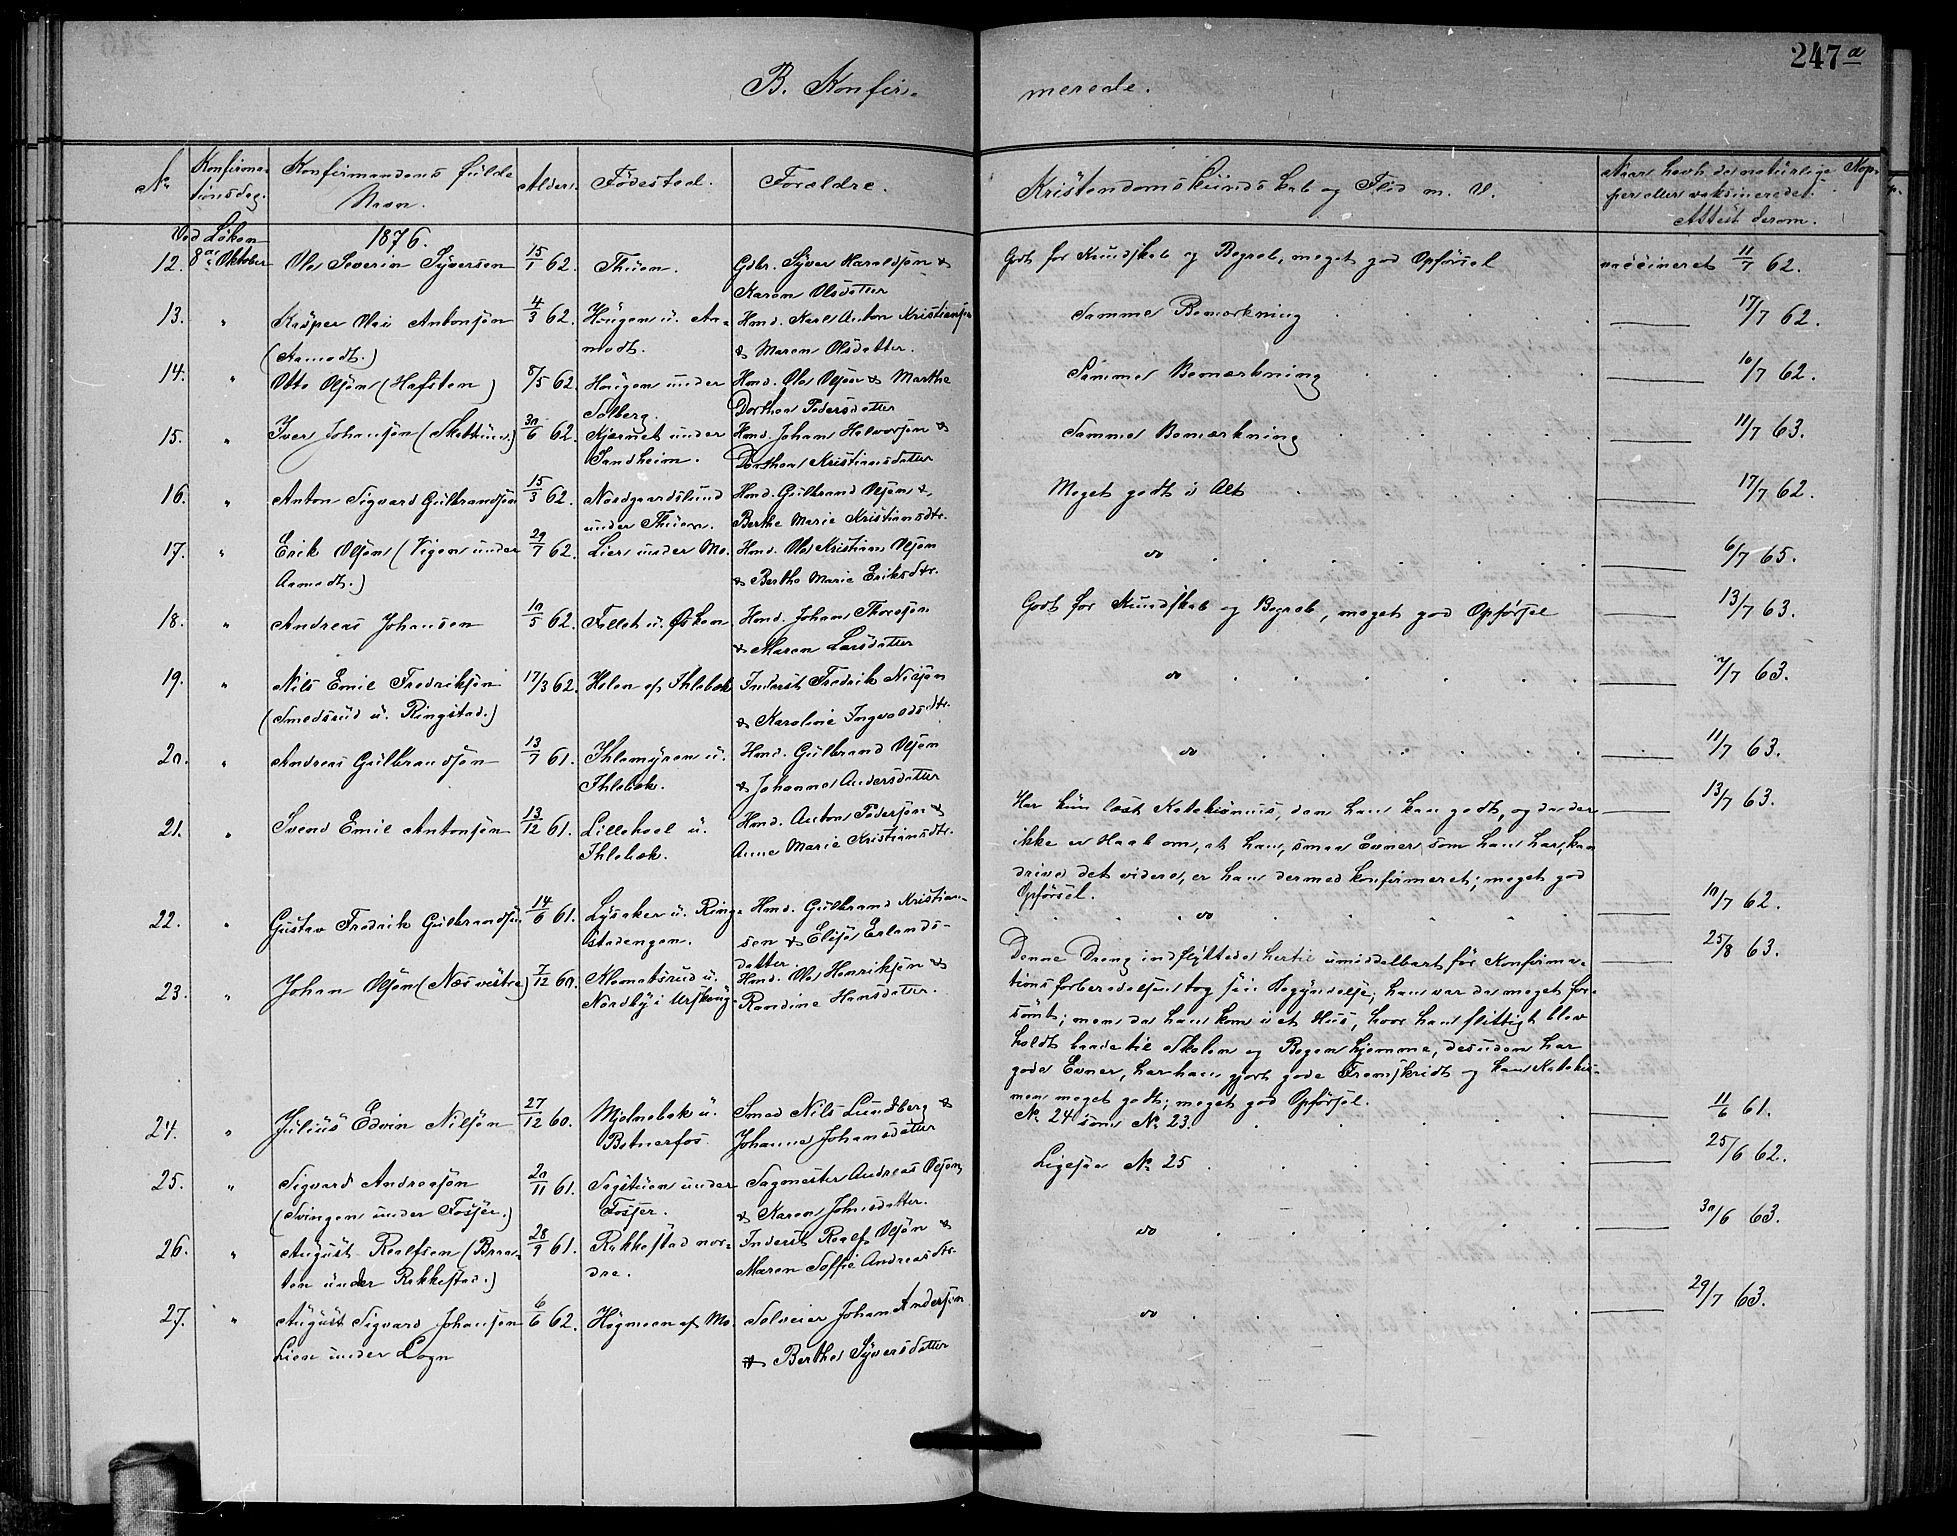 B. Konfir- merede.
247a
No Konfirmationsdag. Konfirmandens fulde Navn. Alder. Fødested. Forældre. Kristendomskundskab og Flid m. V. Naar havt de naturlige Kopper eller vaksineredes. Attest derom.
Ved Løken 1876.
12. 8de Oktober Ole Severin Syversen 15/1 62. Thuen. Gdbr. Syver Haraldsøn & Karen Olsdatter Godt for Kundskab og Begreb, meget god Opførsel vaccineret 11/7 62.
13. " Kasper Antonsøn (Aamodt.) 4/3 62. Haugen u. Aamodt. Hmd. Karl Anton Kristiansen & Maren Olsdatter. Samme Bemærkning 17/7 62.
14. " Otto Olsøn (Hafsten) 8/5 62. Haugen under Solberg. Hmd. Ole Olsøn & Marthe Dorthea Pedersdatter Samme Bemærkning 10/7 62.
15. " Iver Johansøn (Skattum.) 30/6 62. Kjærnet under Sandheim. Hmd. Johan Halvorsøn & Dorthea Kristiansdatter Samme Bemærkning 11/7 63.
16. " Anton Sigvard Gulbrandsøn 15/3 62. Nordgaardslund under Thuen. Hmd. Gulbrand Olsøn & Berthe Marie Kristiansdtr. Meget godt i Alt 17/7 62.
17. " Erik Olsøn (Vigen under Aamodt.) 29/7 62. Lier under Mo. Hmd. Ole Kristian Olsøn & Berthe Marie Eriksdtr. do 6/7 65.
18. " Andreas Johansen 10/5 62. Fallet u. Økern Hmd. Johan Thoresøn & Maren Larsdatter Godt for Kundskab og Begreb, meget god Opførsel 13/7 63.
19. " Nils Emil Fredriksøn (Smedsrud u. Ringstad.) 17/3 62. Holen af Ihlebæk Inderst Fredrik Nilsøn & Karoline Ingvaldsdtr. do 7/7 63.
20. " Andreas Gulbrandsøn 13/7 61. Ihlemyren u. Ihlebæk. Hmd. Gulbrand Olsøn & Johanne Andersdatter do 11/7 63.
21. " Svend Emil Antonsøn 13/12 61. Lillehol u. Ihlebæk. Hmd. Anton Pedersøn & Anne Marie Kristiansdtr. Har kun læst Katekismus, den han kan godt, og da der 13/7 63.
ikke er Haab om, at han, smaa Evner, som han har, kan
drive det videre, er han dermed konfirmeret; meget god
Opførsel.
22. " Gustav Fredrik Gulbrandsøn 14/6 61. Lysaker u. Ringstadengen. Hmd. Gulbrand Kristiansen & Elise Erlandsdatter do 10/7 62.
23. " Johan Olsøn (Næs vestre) 7/12 60. Klematsrud u. Nordby i Urskoug Hmd. Ole Henriksøn & Randine Hansdatter. Denne Dreng indflyttede hertil umiddelbart før Konfirma- 25/8 63.
tionsforberedelsen tog sin Begyndelse; han var da meget for-
sømt; men da han kom i et Hus, hvor han flittigt blev
holdt baade til Skolen og Bogen hjemme, desuden har
gode Evner, har han gjort gode Fremskridt og kan Katekis-
men meget godt; meget god Opførsel.
24. " Julius Edvin Nilsøn 27/12 60. Mjølnebæk u. Botnerfos. Smed Nils Lundberg & Johanne Johansdatter No 24 som No 23. 11/6 61.
25. " Sigvard Andreasøn (Svingen under Fosser.) 20/11 61. Sagstuen under Fosser. Sagmester Andreas Olsøn & Karen Johnsdatter. Ligesaa No 25 25/6 62.
26. " August Roalfsen (Braaten under Rakkestad.) 28/9 61. Rakkestad nordre. Inderst Roalf Olsøn & Maren Soffie Andreasdtr. do 30/6 63.
27. " August Sigvard Johansøn Lien under Logn 6/6 62. Høgmoen af Mo. Selveier Johan Andersøn & Berthe Syversdatter do 29/7 63.